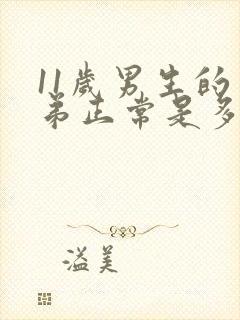 11歲男生的
弟正常是多
溢美